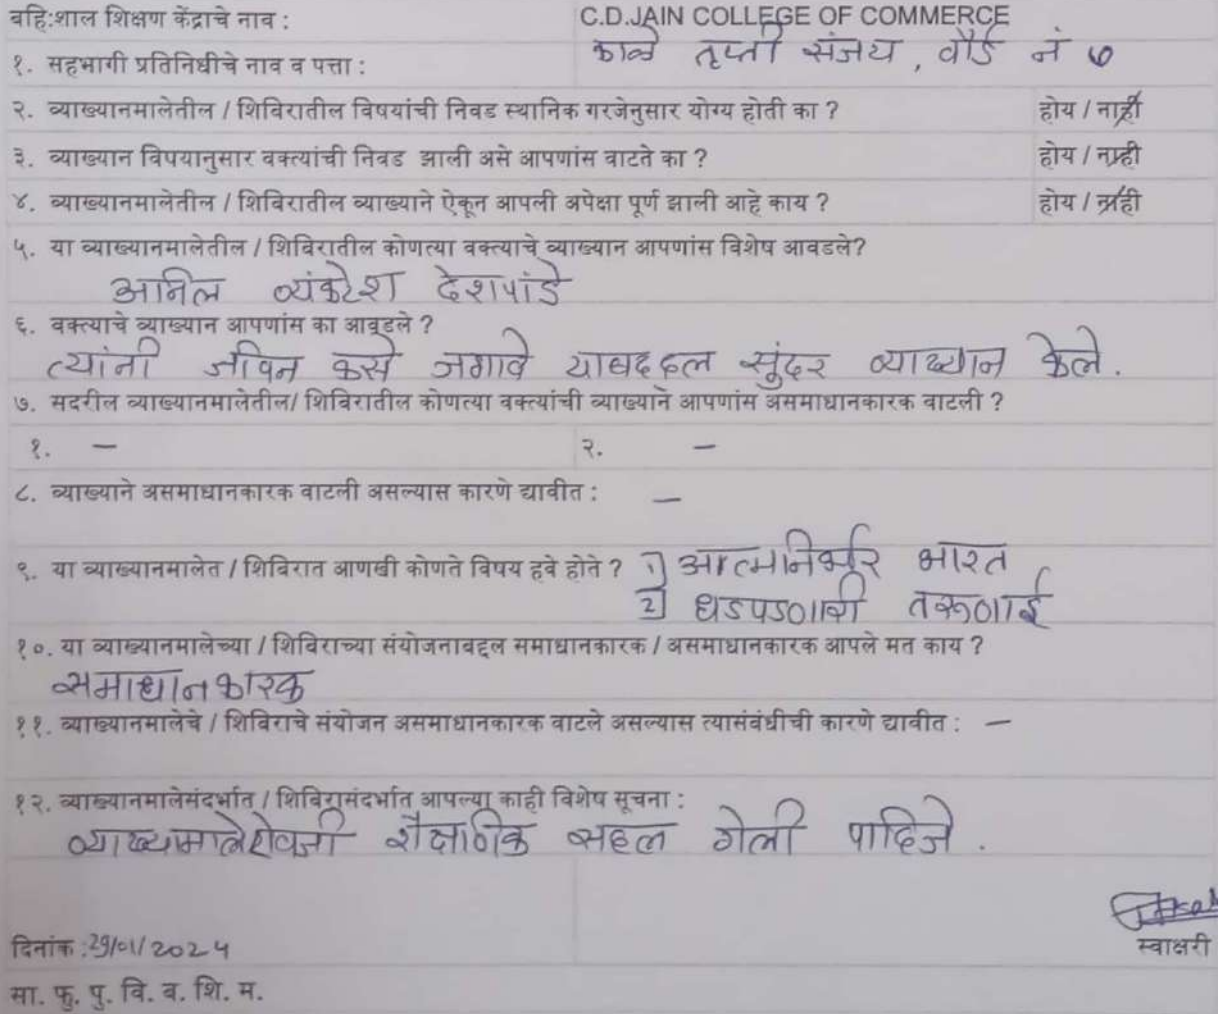 बहि:शाल शिक्षण केंद्राचे नाव : C.D.JAIN COLLEGE OF COMMERCE
१. सहभागी प्रतिनिधीचे नाव व पत्ता : काळे तृप्ती संजय, वॉर्ड नं ७
२. व्याख्यानमालेतील / शिविरातील विषयांची निवड स्थानिक गरजेनुसार योग्य होती का ? होय / नाही
३. व्याख्यान विषयानुसार वक्त्यांची निवड झाली असे आपणांस वाटते का ? होय / नाही
४. व्याख्यानमालेतील / शिविरातील व्याख्याने ऐकून आपली अपेक्षा पूर्ण झाली आहे काय ? होय / नाही
५. या व्याख्यानमालेतील / शिविरातील कोणत्या वक्त्याचे व्याख्यान आपणांस विशेष आवडले?
अनिल व्यंकटेश देशपांडे
६. वक्त्याचे व्याख्यान आपणांस का आवडले ?
त्यांनी जीवन कसे जगावे याबद्दल सुंदर व्याख्यान केले.
७. सदरील व्याख्यानमालेतील/ शिविरातील कोणत्या वक्त्यांची व्याख्याने आपणांस असमाधानकारक वाटली ?
१. – २. –
८. व्याख्याने असमाधानकारक वाटली असल्यास कारणे द्यावीत : –
९. या व्याख्यानमालेत / शिविरात आणखी कोणते विषय हवे होते ? 1) आत्मनिर्भर भारत
2) धडपडणारी तरूणाई
१०. या व्याख्यानमालेच्या / शिविराच्या संयोजनाबद्दल समाधानकारक / असमाधानकारक आपले मत काय ?
समाधानकारक
११. व्याख्यानमालेचे / शिविराचे संयोजन असमाधानकारक वाटले असल्यास त्यासंबंधीची कारणे द्यावीत : –
१२. व्याख्यानमालेसंदर्भात / शिविरासंदर्भात आपल्या काही विशेष सूचना :
व्याख्यामालेऐवजी शैक्षणिक सहल गेली पाहिजे.
दिनांक : 29/01/2024
स्वाक्षरी
सा. फु. पु. वि. ब. शि. म.